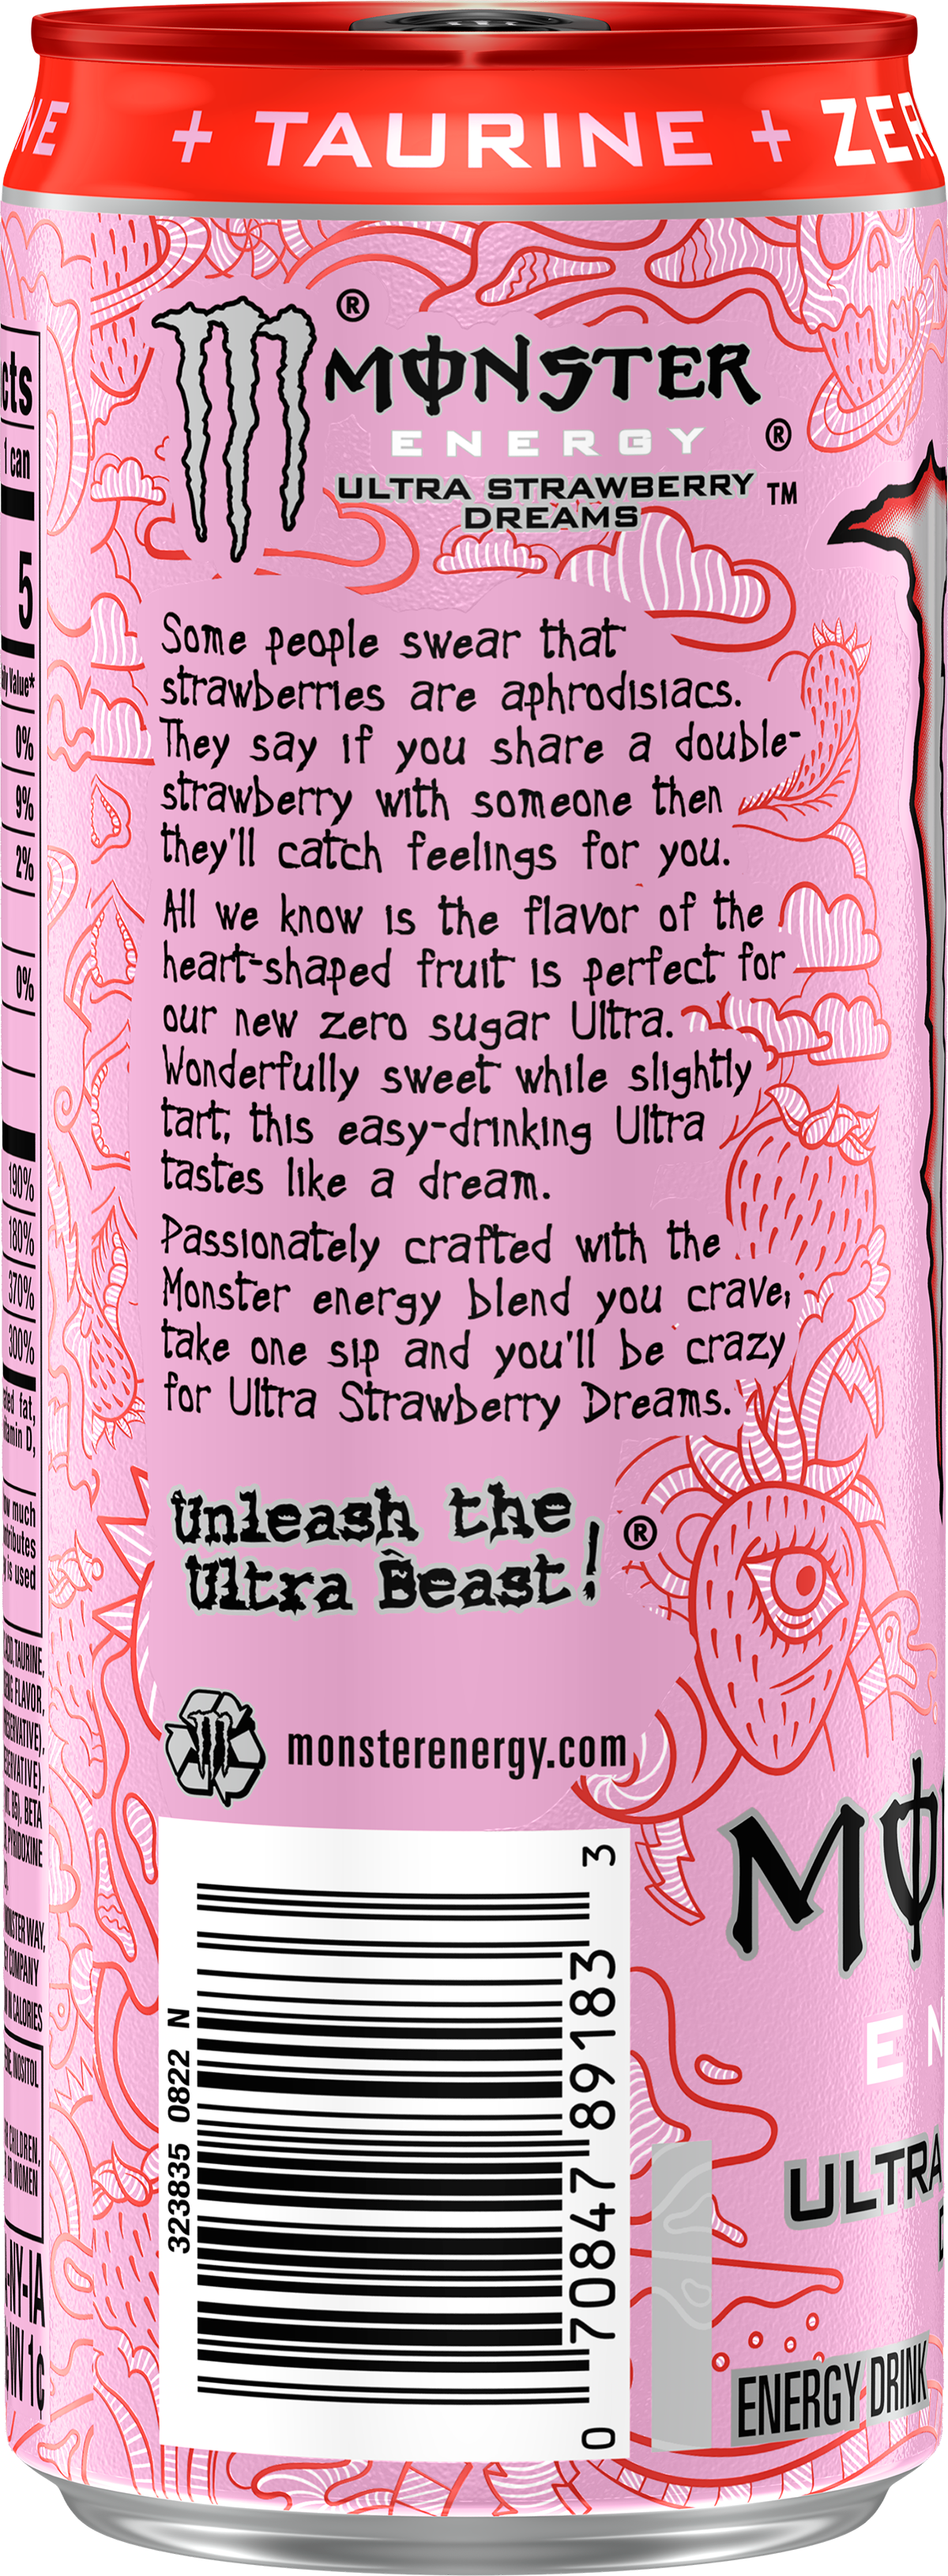 + TAURINE + ZER
®
MONSTER
ENERGY ®
ULTRA STRAWBERRY ™
DREAMS
Some people swear that
strawberries are aphrodisiacs.
They say if you share a double-
strawberry with someone then
they'll catch feelings for you.
All we know is the flavor of the
heart-shaped fruit is perfect for
our new zero sugar Ultra.
Wonderfully sweet while slightly
tart, this easy-drinking Ultra
tastes like a dream.
Passionately crafted with the
Monster energy blend you crave,
take one sip and you'll be crazy
for Ultra Strawberry Dreams.
Unleash the
Ultra Beast! ®
monsterenergy.com
323835 0822 N
0 70847 89183 3
cts
1 can
5
Value*
0%
9%
2%
0%
190%
180%
370%
300%
fat,
D,
much
is used
TAURINE,
FLAVOR,
BETA
PYRIDOXINE
MONSTER WAY,
COMPANY
CALORIES
INOSITOL
CHILDREN,
WOMEN
-NY-IA
WV 1¢
MO
EN
ULTRA
ENERGY DRINK